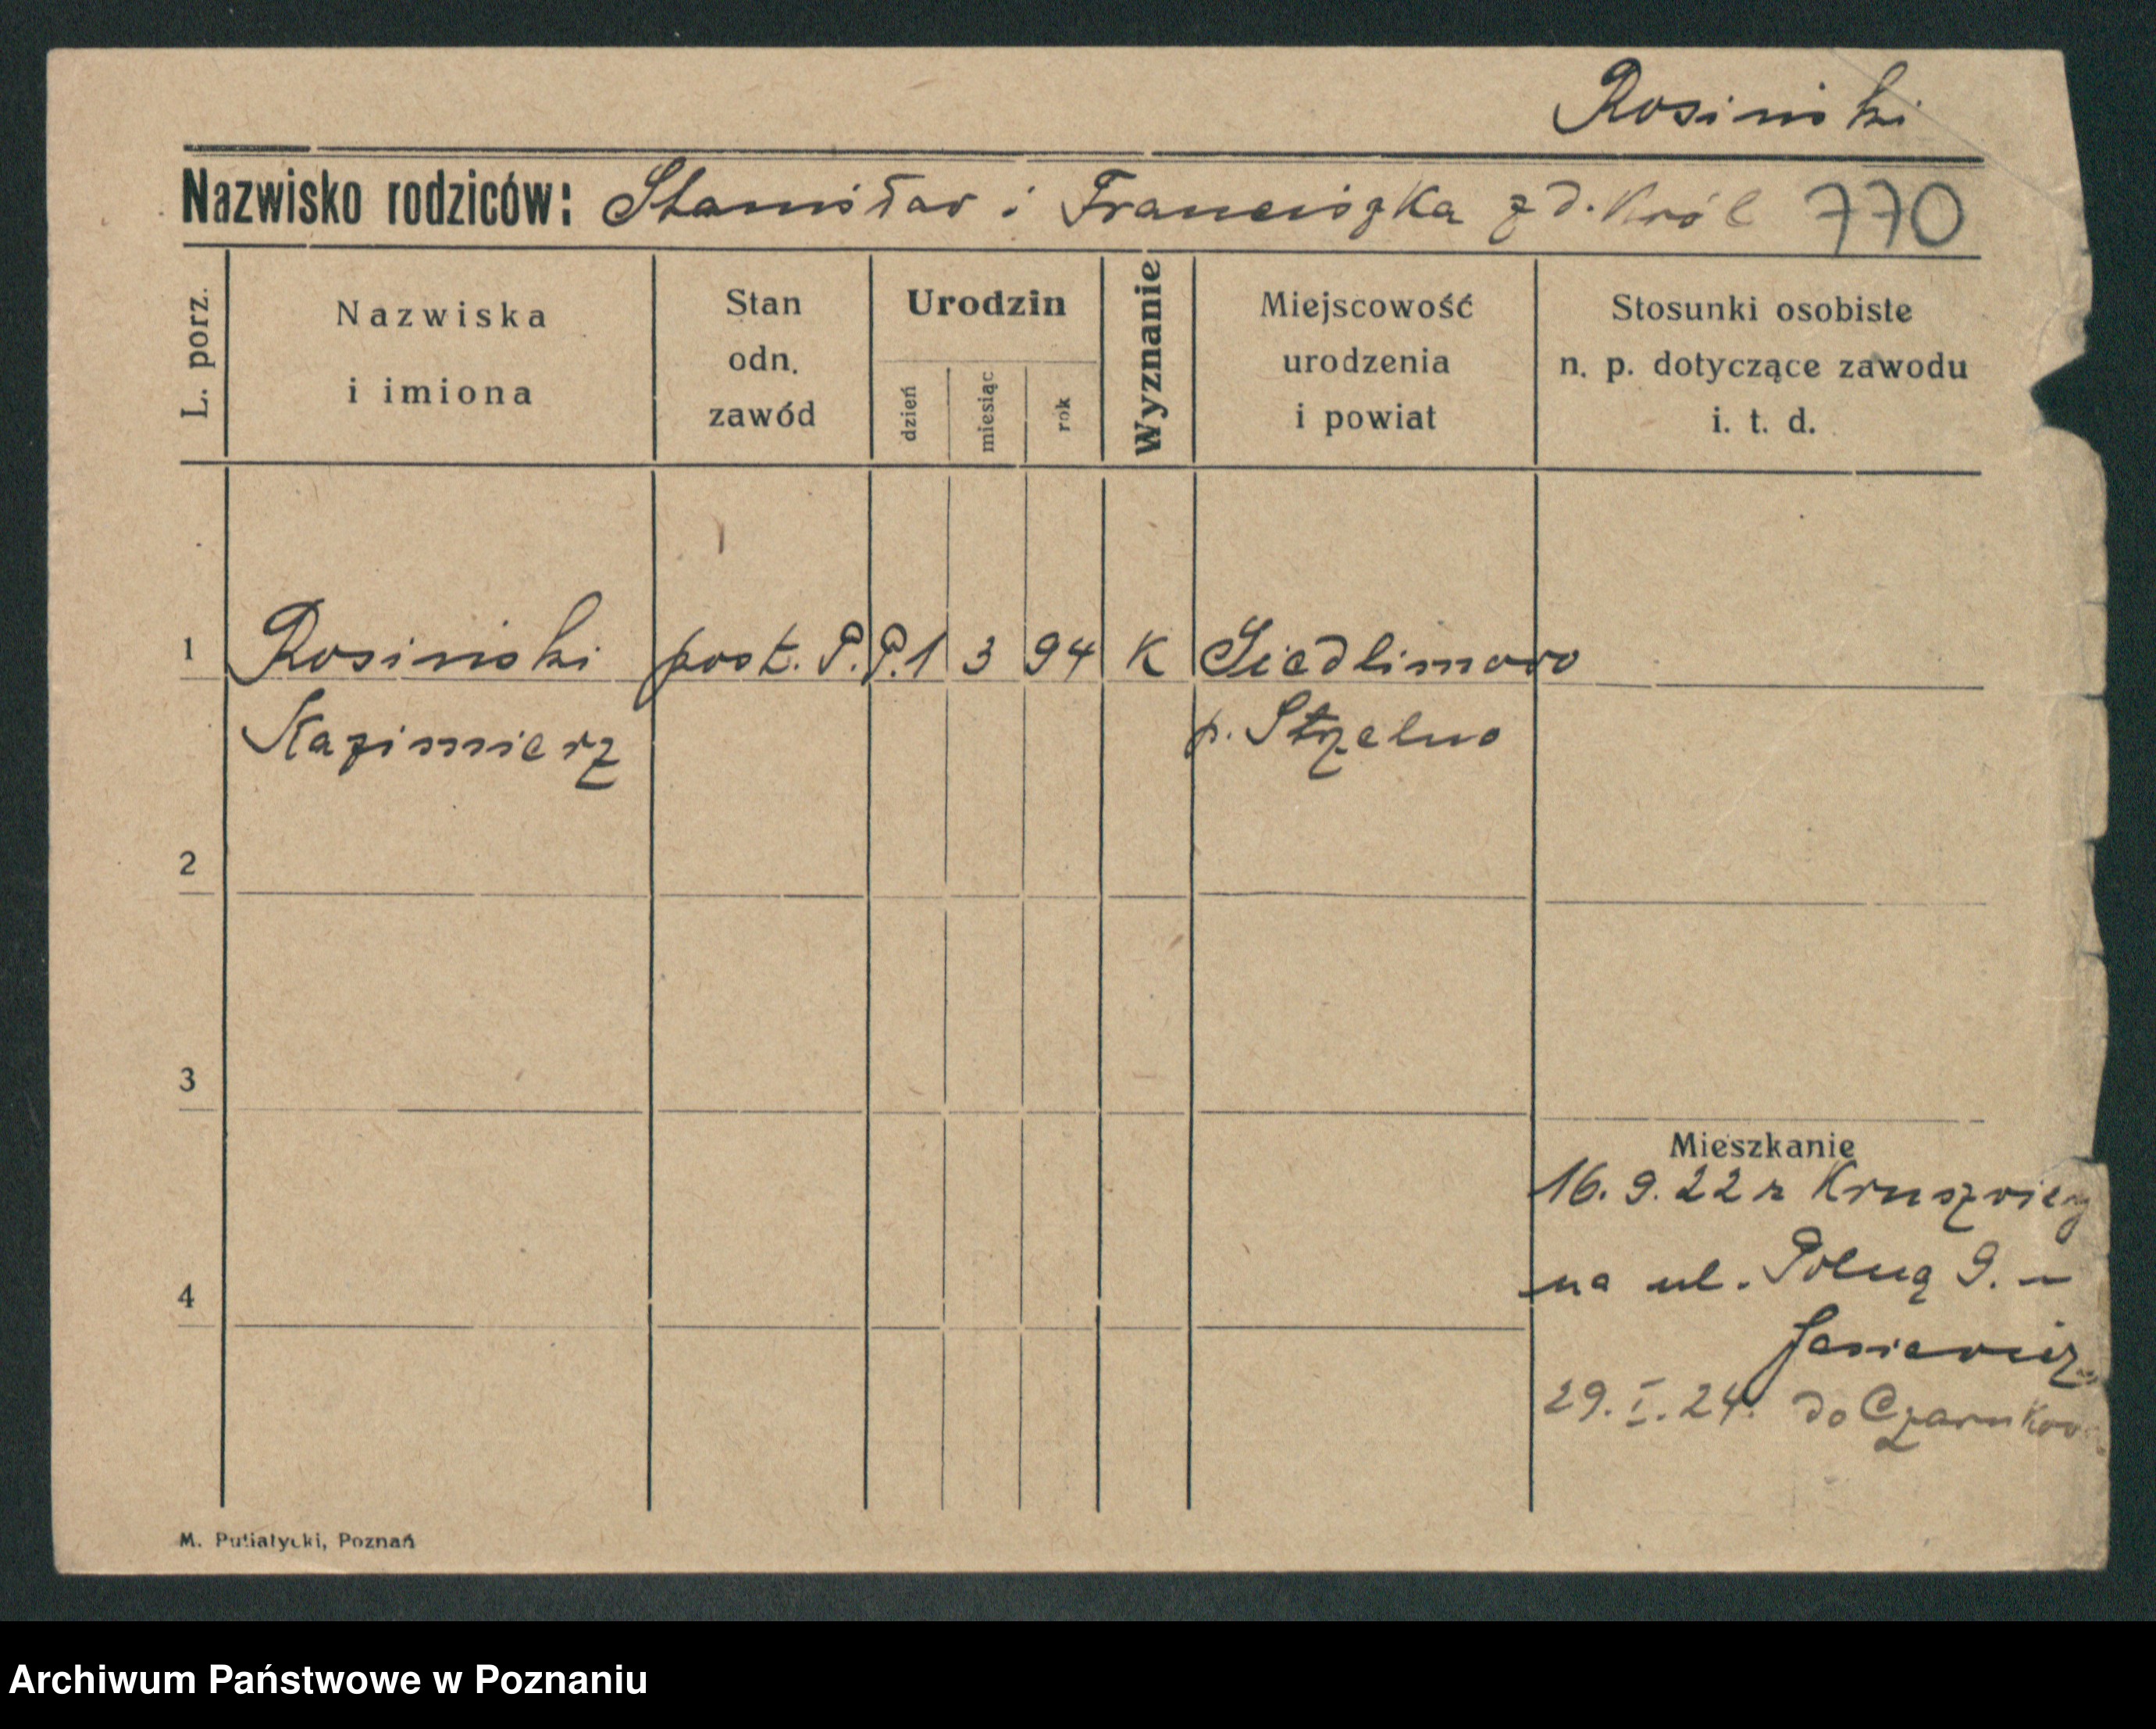 Rosiński
Nazwisko rodziców: Stanisław i Franciszka z d. Król 770
L. porz.
Nazwiska
i imiona
Stan
odn.
zawód
Urodzin
dzień
miesiąc
rok
Wyznanie
Miejscowość
urodzenia
i powiat
Stosunki osobiste
n. p. dotyczące zawodu
i. t. d.
1 Rosiński post. P.P. 1 3 94 K Siedlimowo
Kazimierz p. Strzelno
2
3
Mieszkanie
16. 9. 22 z Kruszwicy
na ul. Polną 9. -
4
29. I. 24. do
M. Putiatycki, Poznań
Archiwum Państwowe w Poznaniu